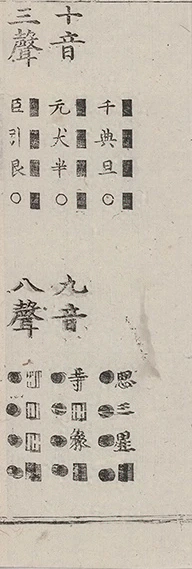 十音
三聲
千■典■旦■○■
元■犬■半■○■
臣■引■艮■○■
九音
八聲
●思●三●星●■
●寺●□●象●■
●□●□●□●■